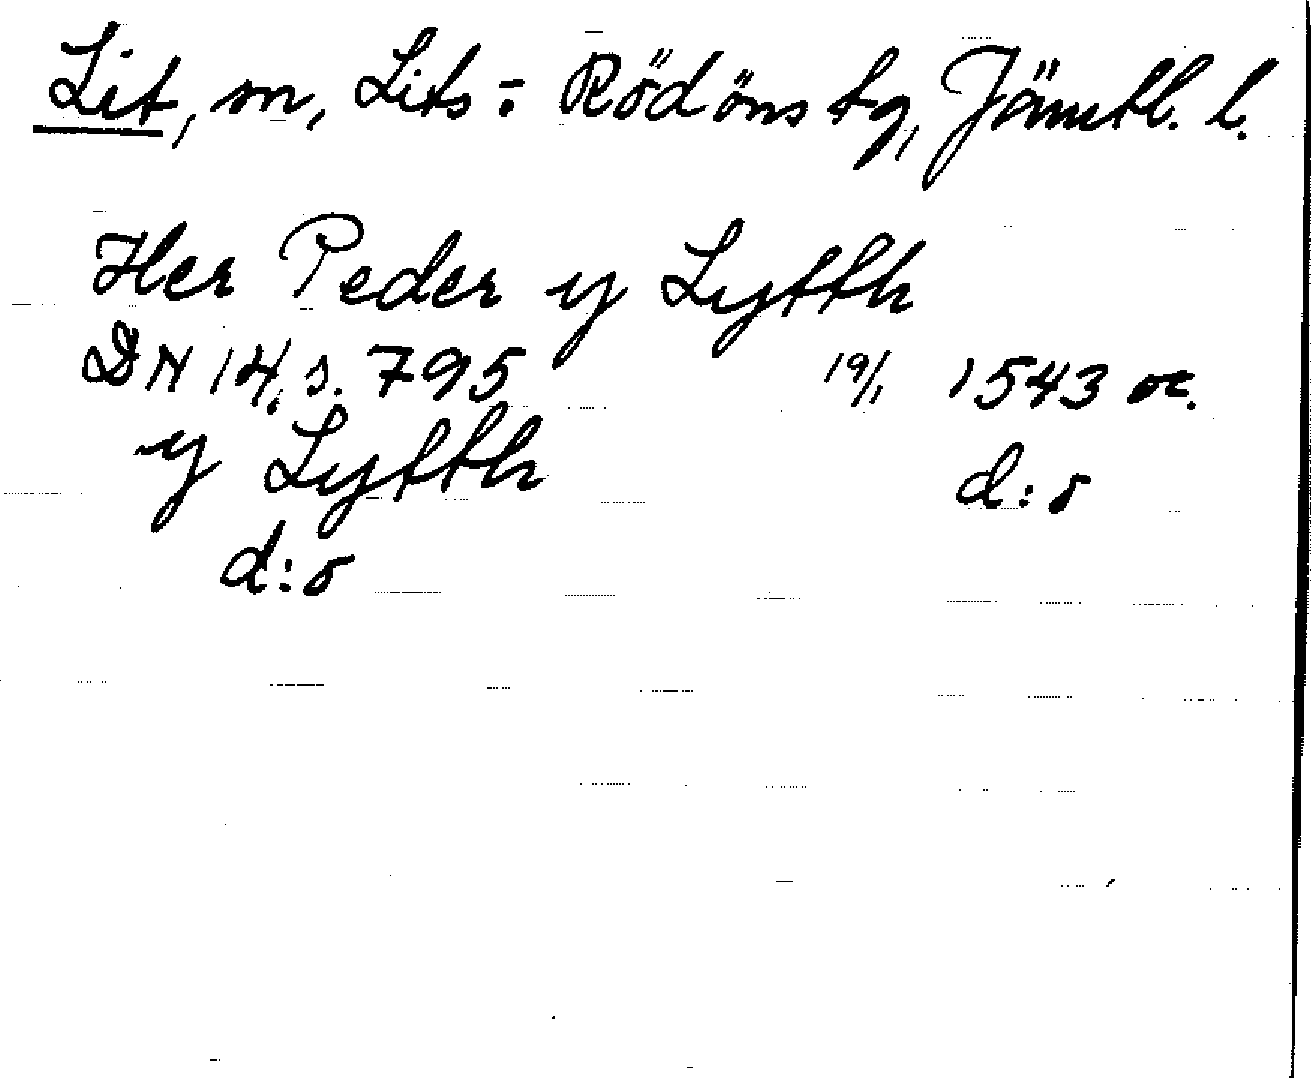 Lit, sn, Lits o. Rödöns tg, Jämtl. l.
Her Peder y Lytth
DN 14, s. 795 19/1 1543 or.
y Lytth d:o
d:o